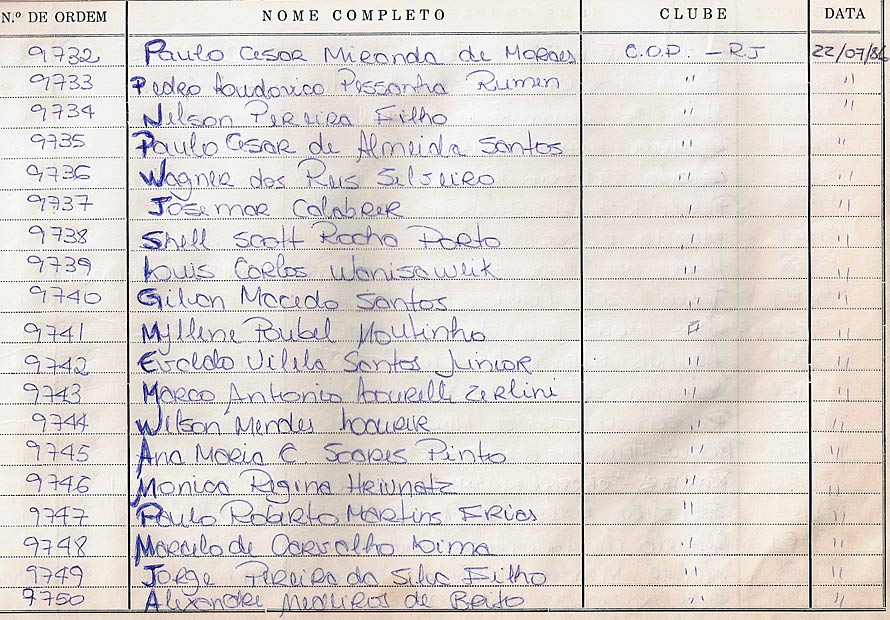 N.º DE ORDEM NOME COMPLETO CLUBE DATA
9732 Paulo Cesar Miranda de Moraes C.O.P. - RJ 22/07/86
9733 Pedro Loudovico Pessanha Rumen " "
9734 Nelson Pereira Filho " "
9735 Paulo Cesar de Almeida Santos " "
9736 Wagner dos Reis " "
9737 Josemar Calabrer " "
9738 Shell Scott Rocha Porto " "
9739 Louis Carlos " "
9740 Gilvan Macedo Santos " "
9741 Myllene Poubel Moutinho " "
9742 Evaldo Vilela Santos Junior " "
9743 Marco Antonio Zerlini " "
9744 Wilson Mendes " "
9745 Ana Maria C. Soares Pinto " "
9746 Monica Regina " "
9747 Paulo Roberto Martins Frias " "
9748 Marcelo de Carvalho Lima " "
9749 Jorge Pereira da Silva Filho " "
9750 Alexandre Medeiros de Brito " "